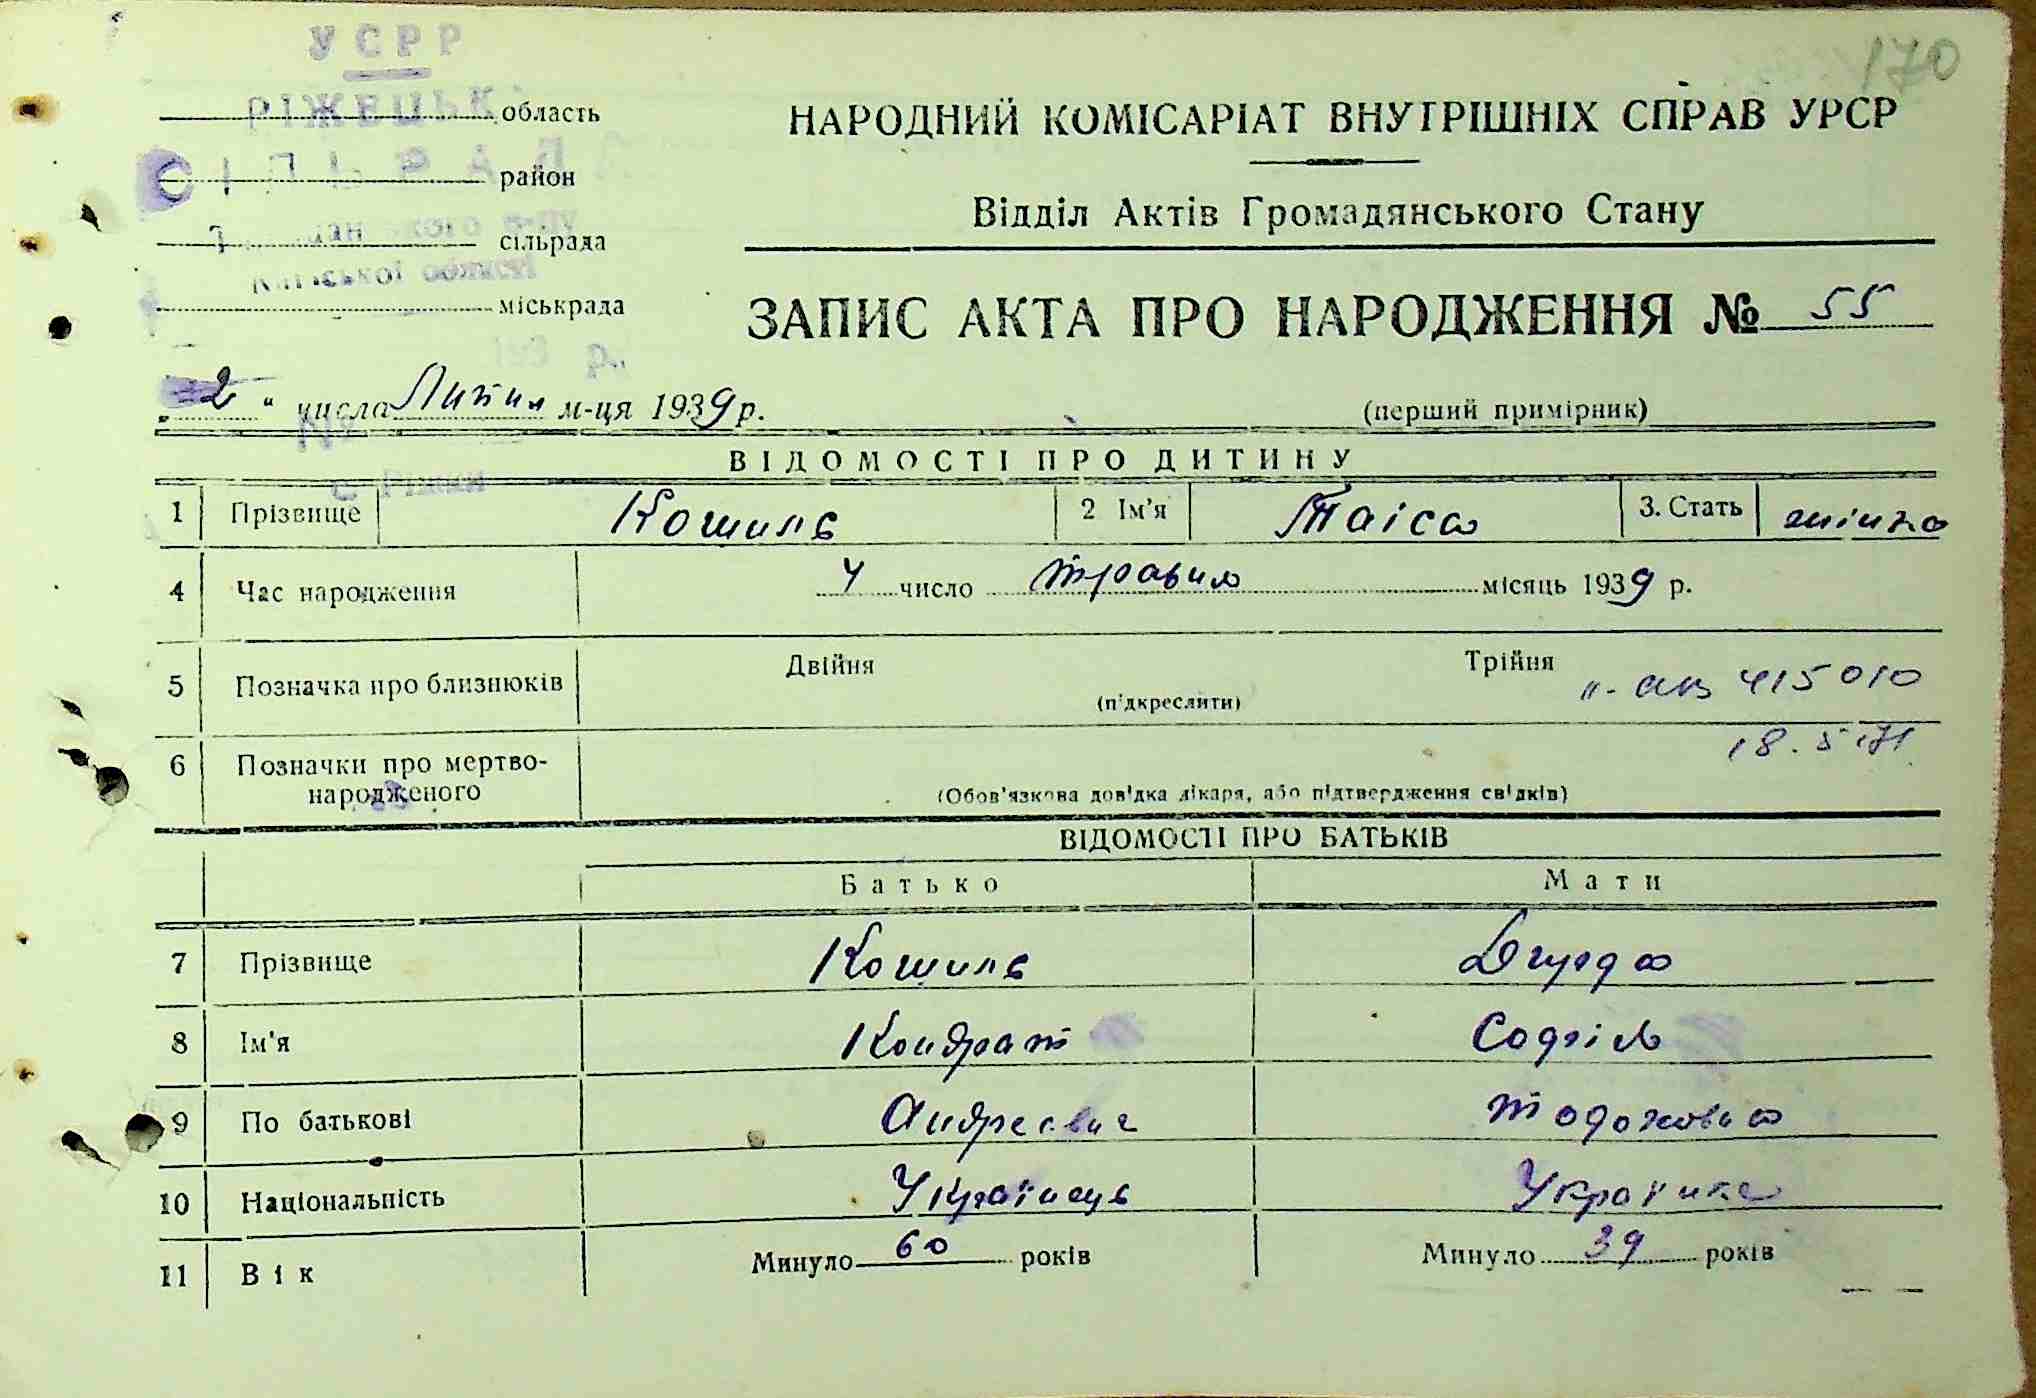 170
УСРР
РІЖЕЦЬК
область
НАРОДНИЙ КОМІСАРІАТ ВНУТРІШНІХ СПРАВ УРСР
район
Відділ Актів Громадянського Стану
сільрада
Київської області
міськрада
ЗАПИС АКТА ПРО НАРОДЖЕННЯ № 55
193 р.
„2“ числа Липня м-ця 1939 р.
(перший примірник)
№
ВІДОМОСТІ ПРО ДИТИНУ
с. Ріжки
1 Прізвище Кошиль 2 Ім'я Таіса 3. Стать жінка
4 Час народження 4 число травня місяць 1939 р.
5 Позначка про близнюків Двійня Трійня
(підкреслити)
415010
18.5.71
6 Позначки про мертво-
народженого
(Обов'язкова довідка лікаря, або підтвердження свідків)
ВІДОМОСТІ ПРО БАТЬКІВ
Батько Мати
7 Прізвище Кошиль Дзюда
8 Ім'я Кондрат Софія
9 По батькові Андреевич
10 Національність Українець Українка
11 Вік Минуло 60 років Минуло 39 років